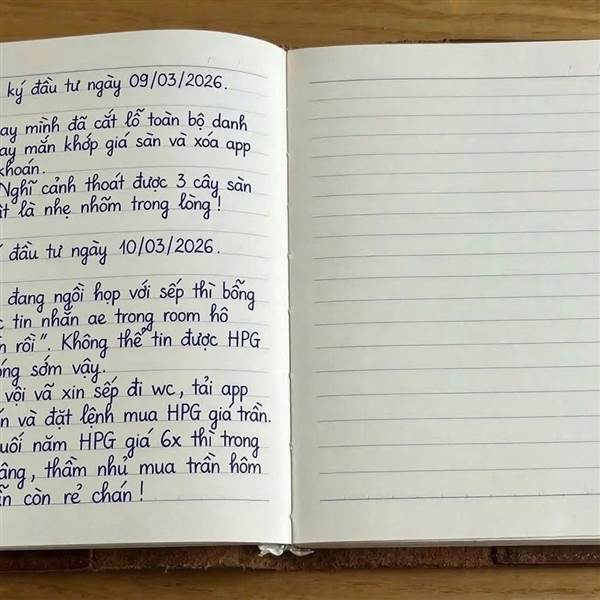 ký đầu tư ngày 09/03/2026.
ay mình đã cắt lỗ toàn bộ danh
ay mắn khớp giá sàn và xóa app
khoán.
Nghĩ cảnh thoát được 3 cây sàn
ật là nhẹ nhõm trong lòng!
đầu tư ngày 10/03/2026.
đang ngồi họp với sếp thì bỗng
c tin nhắn ae trong room hô
n rồi". Không thể tin được HPG
óng sớm vậy.
vội vã xin sếp đi wc, tải app
n và đặt lệnh mua HPG giá trần.
uối năm HPG giá 6x thì trong
âng, thầm nhủ mua trần hôm
ẫn còn rẻ chán!